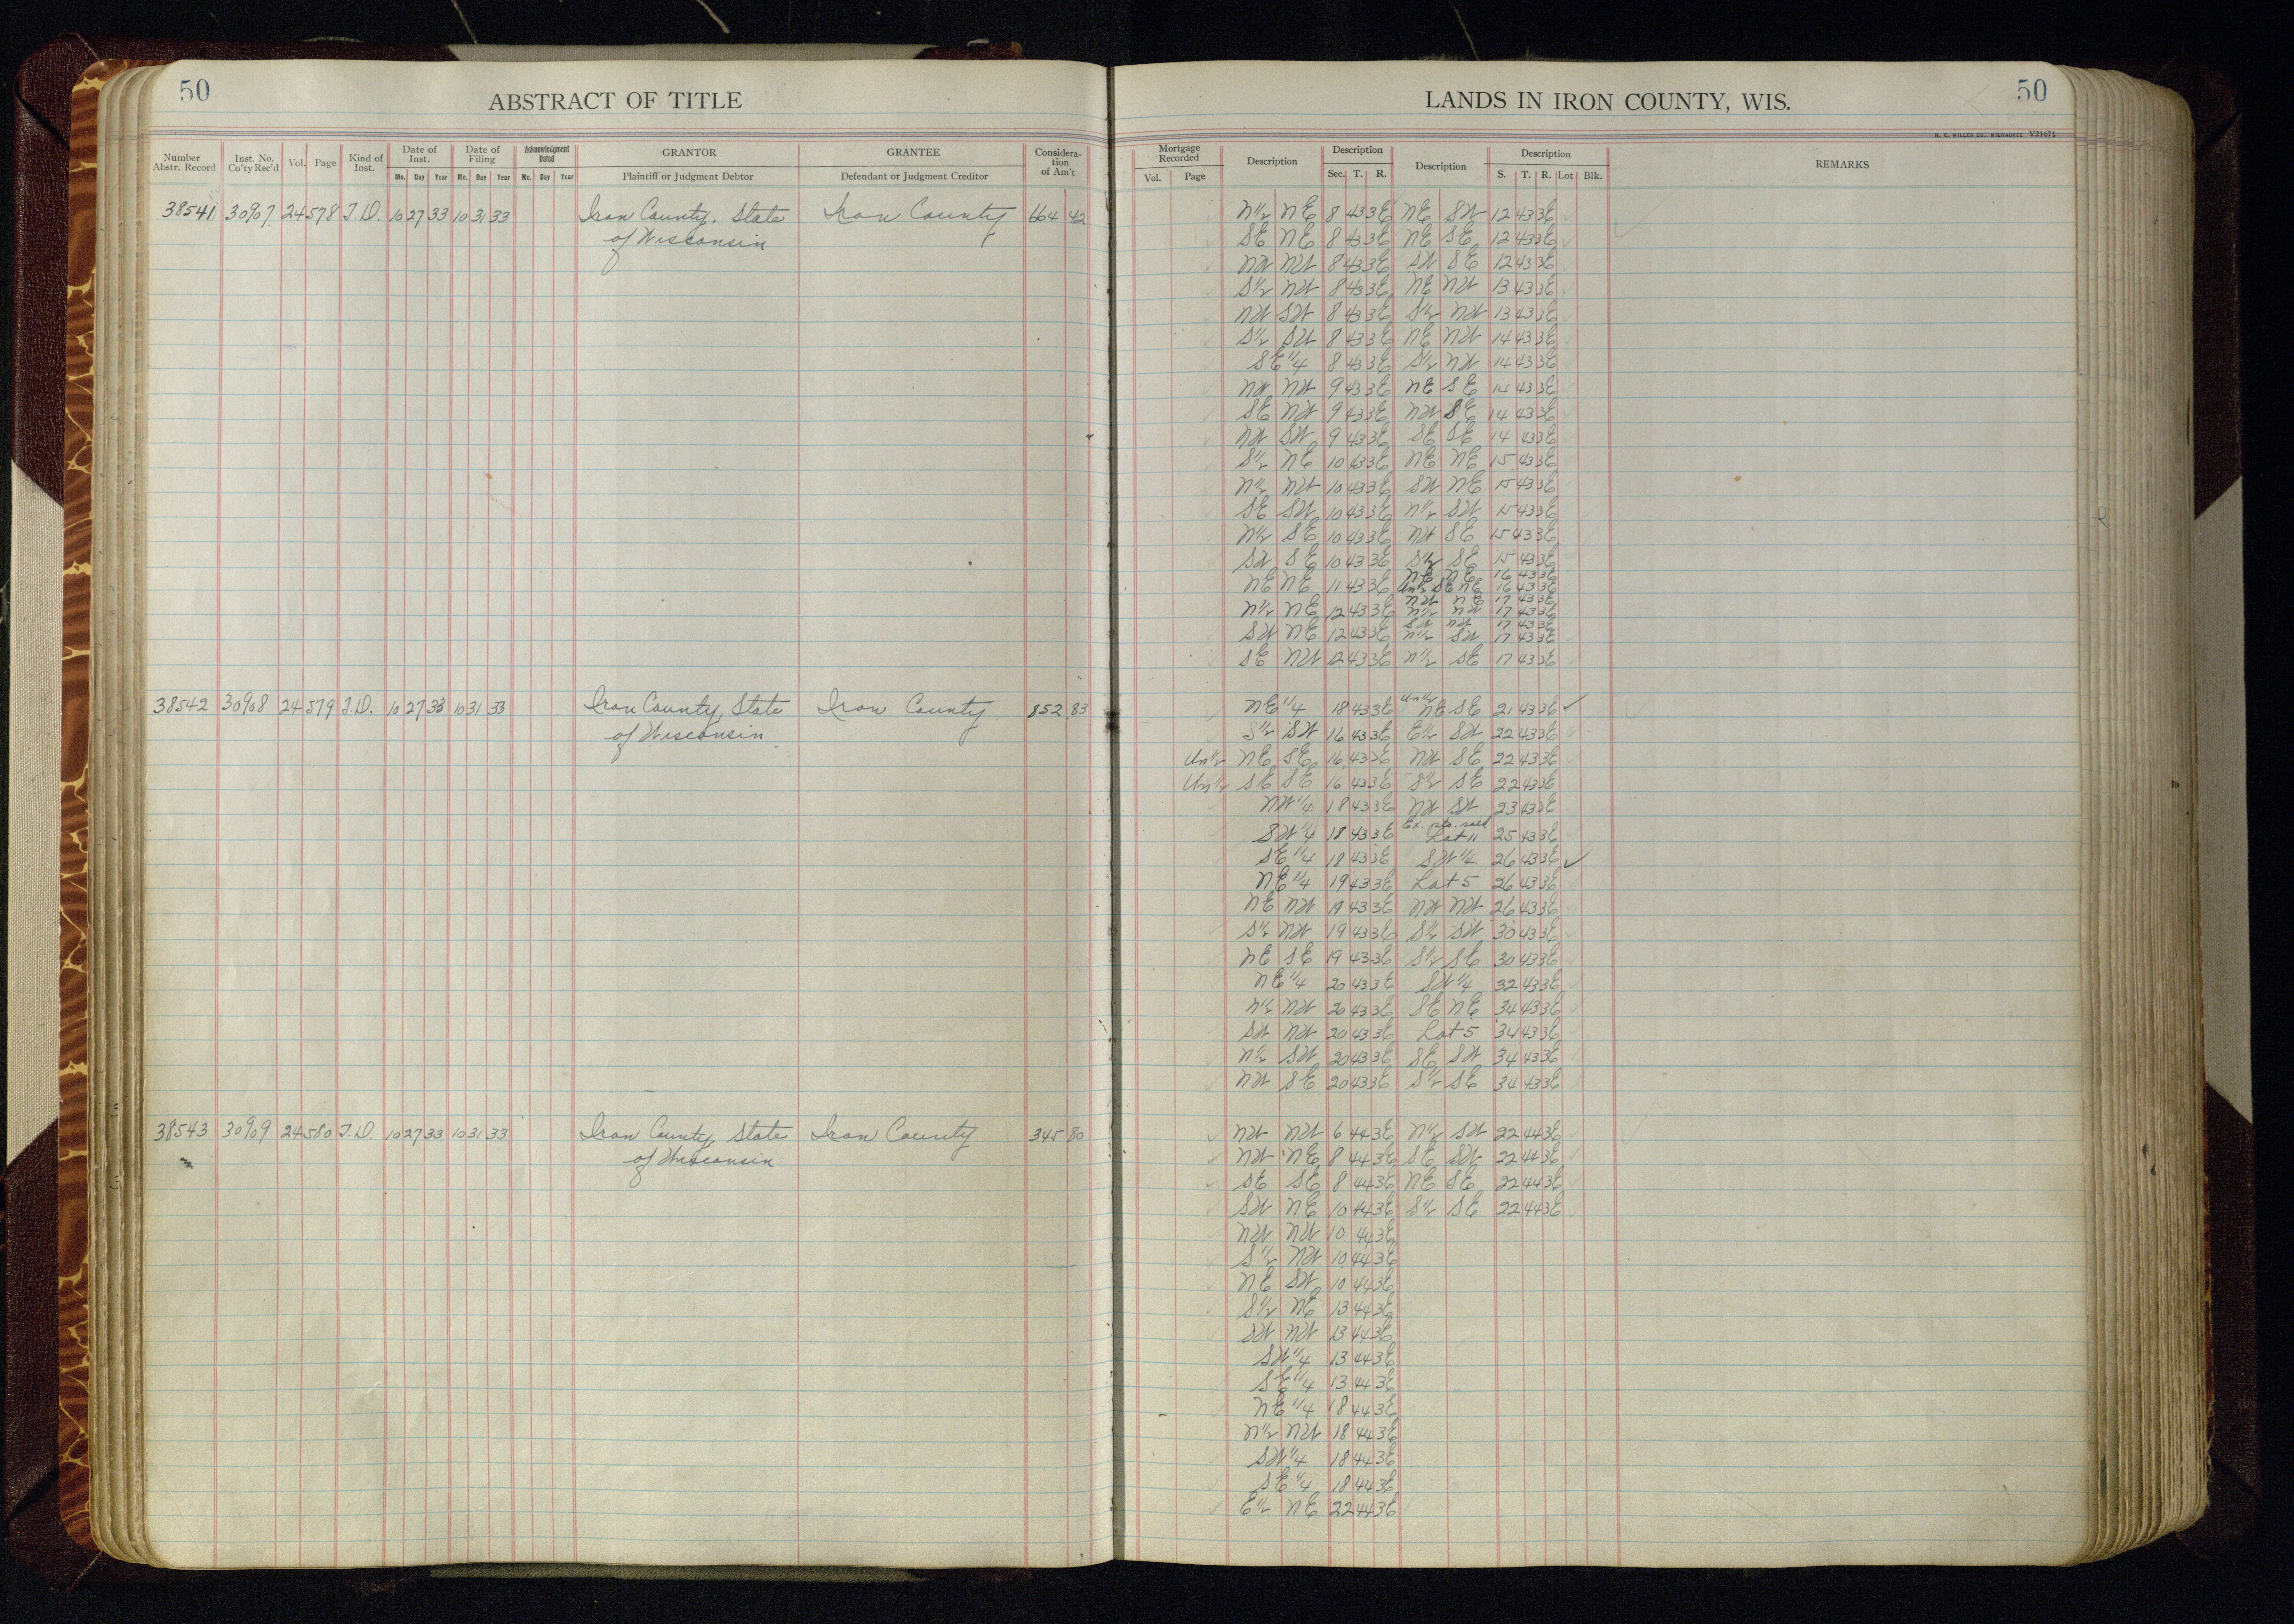 50
ABSTRACT OF TITLE
Number Abstr. Record
Inst. No. Co'ty Rec'd
Vol.
Page
Kind of Inst.
Date of Inst.
Date of Filing
Acknowledgment Dated
GRANTOR
GRANTEE
Considera-tion of Am't
Mo. Day Year Mo. Day Year Mo. Day Year
Plaintiff or Judgment Debtor
Defendant or Judgment Creditor
38541 30907 24 578 T.D. 10 27 33 10 31 33 Iron County, State Iron County 664 42
of Wisconsin
38542 30908 24 579 T.D. 10 27 33 10 31 33 Iron County, State Iron County 852 83
of Wisconsin
38543 30909 24 580 T.D. 10 27 33 10 31 33 Iron County, State Iron County 345 80
of Wisconsin
LANDS IN IRON COUNTY, WIS.
50
H. C. MILLER CO., MILWAUKEE V21671
Mortgage Recorded
Description
Description
Description
Description
REMARKS
Vol. Page Sec. T. R. S. T. R. Lot Blk.
N1/2 NE 8 43 3E NE SW 12 43 3E
SE NE 8 43 3E NE SE 12 43 3E
NW NW 8 43 3E SW SE 12 43 3E
S1/2 NW 8 43 3E NE NW 13 43 3E
NW SW 8 43 3E S1/2 NW 13 43 3E
S1/2 SW 8 43 3E NE NW 14 43 3E
SE 1/4 8 43 3E S1/2 NW 14 43 3E
NW NW 9 43 3E NE SE 14 43 3E
SE NW 9 43 3E NW SE 14 43 3E
NW SW 9 43 3E SE SE 14 43 3E
S1/2 NE 10 43 3E NE NE 15 43 3E
N1/2 NW 10 43 3E SW NE 15 43 3E
SE SW 10 43 3E N1/2 SW 15 43 3E
N1/2 SE 10 43 3E NW SE 15 43 3E
SW SE 10 43 3E S1/2 SE 15 43 3E
NE NE 16 43 3E
NE NE 11 43 3E Un1/2 SE NE 16 43 3E
NW NE 17 43 3E
N1/2 NE 12 43 3E N1/2 NW 17 43 3E
SW NW 17 43 3E
SW NE 12 43 3E N1/2 SW 17 43 3E
SE NW 12 43 3E N1/2 SE 17 43 3E
NE 1/4 18 43 3E Un1/2 NE SE 21 43 3E ✓
S1/2 SW 16 43 3E E1/2 SW 22 43 3E
Un1/2 NE SE 16 43 3E NW SE 22 43 3E
Un1/2 SE SE 16 43 3E S1/2 SE 22 43 3E
NW 1/4 18 43 3E NW SW 23 43 3E
Ex. pts. sold
SW 1/4 18 43 3E Lot 11 25 43 3E
SE 1/4 18 43 3E SW 1/4 26 43 3E ✓
NE 1/4 19 43 3E Lot 5 26 43 3E
NE NW 19 43 3E NW NW 26 43 3E
S1/2 NW 19 43 3E S1/2 SW 30 43 3E
NE SE 19 43 3E S1/2 SE 30 43 3E
NE 1/4 20 43 3E SW 1/4 32 43 3E
N1/2 NW 20 43 3E SE NE 34 43 3E
SW NW 20 43 3E Lot 5 34 43 3E
N1/2 SW 20 43 3E SE SW 34 43 3E
NW SE 20 43 3E S1/2 SE 34 43 3E
NW NW 6 44 3E N1/2 SW 22 44 3E
NW NE 8 44 3E SE SW 22 44 3E
SE SE 8 44 3E NE SE 22 44 3E
SW NE 10 44 3E S1/2 SE 22 44 3E
NW NW 10 44 3E
S1/2 NW 10 44 3E
NE SW 10 44 3E
S1/2 NE 13 44 3E
SW NW 13 44 3E
SW 1/4 13 44 3E
SE 1/4 13 44 3E
NE 1/4 18 44 3E
N1/2 NW 18 44 3E
SW 1/4 18 44 3E
SE 1/4 18 44 3E
E1/2 NE 22 44 3E